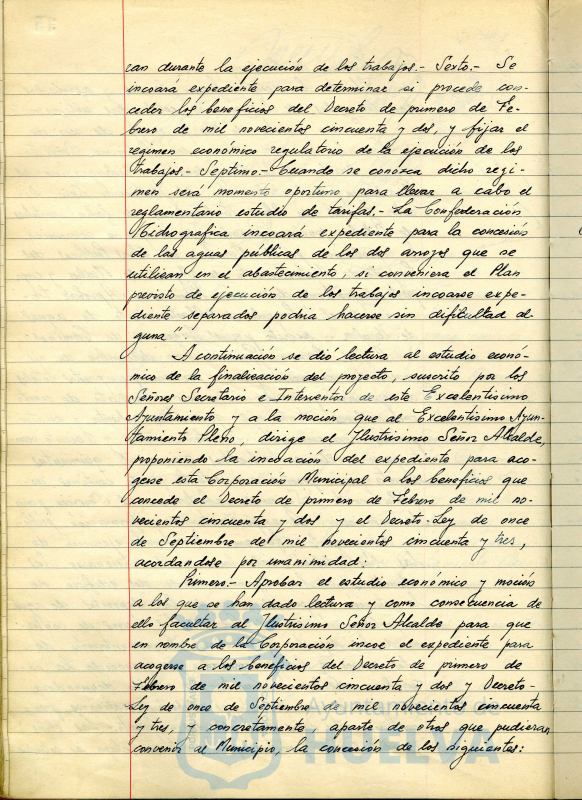 ran durante la ejecución de los trabajos.- Sexto.- Se
incoará expediente para determinar si procede con-
ceder los beneficios del Decreto de primero de Fe-
brero de mil novecientos cincuenta y dos, y fijar el
regimen económico regulatorio de la ejecución de los
trabajos.- Septimo.- Cuando se conozca dicho regi-
men será momento oportuno para llevar a cabo el
reglamentario estudio de tarifas.- La Confederación
Hidrografica incoará expediente para la concesión
de las aguas públicas de los dos arroyos que se
utilizan en el abastecimiento, si conveniera el Plan
previsto de ejecución de los trabajos incoarse expe-
diente separados podria hacerse sin dificultad al-
guna"
A continuación se dió lectura al estudio econó-
mico de la finalización del proyecto, suscrito por los
Señores Secretario e Interventor de este Excelentisimo
Ayuntamiento y a la moción que al Excelentisimo Ayun-
tamiento Pleno, dirige el Ilustrisimo Señor Alcalde,
proponiendo la incoación del expediente para aco-
gerse esta Corporación Municipal a los beneficios que
concede el Decreto de primero de Febrero de mil no-
vecientos cincuenta y dos y el Decreto-Ley de once
de Septiembre de mil novecientos cincuenta y tres,
acordandose por unanimidad:
Primero.- Aprobar el estudio económico y moción
a los que se han dado lectura y como consecuencia de
ello facultar al Ilustrisimo Señor Alcalde para que
en nombre de la Corporación incoe el expediente para
acogerse a los beneficios del Decreto de primero de
Febrero de mil novecientos cincuenta y dos y Decreto-
Ley de once de Septiembre de mil novecientos cincuenta
y tres, y concretamente, aparte de otros que pudieran
convenir al Municipio, la concesión de los siguientes:
HUELVA